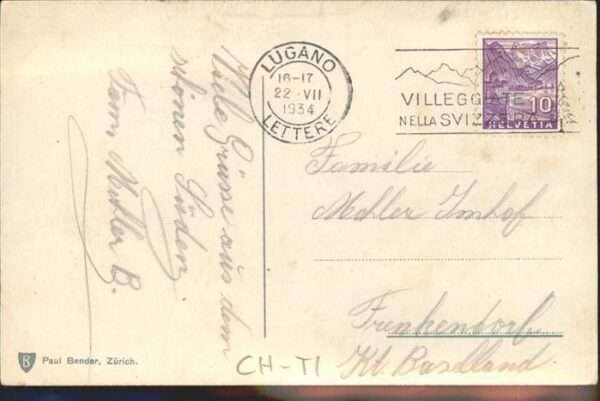 Viele Grüsse aus dem
schönen Süden.
Fam. Mohler B.
LUGANO
16-17
22·VII
1934
LETTERE
VILLEGG
NELLA SVIZ
10
HELVETIA
Familie
Mohler Imhof
Frenkendorf.
Kt. Baselland.
B
Paul Bender, Zürich.
CH-TI